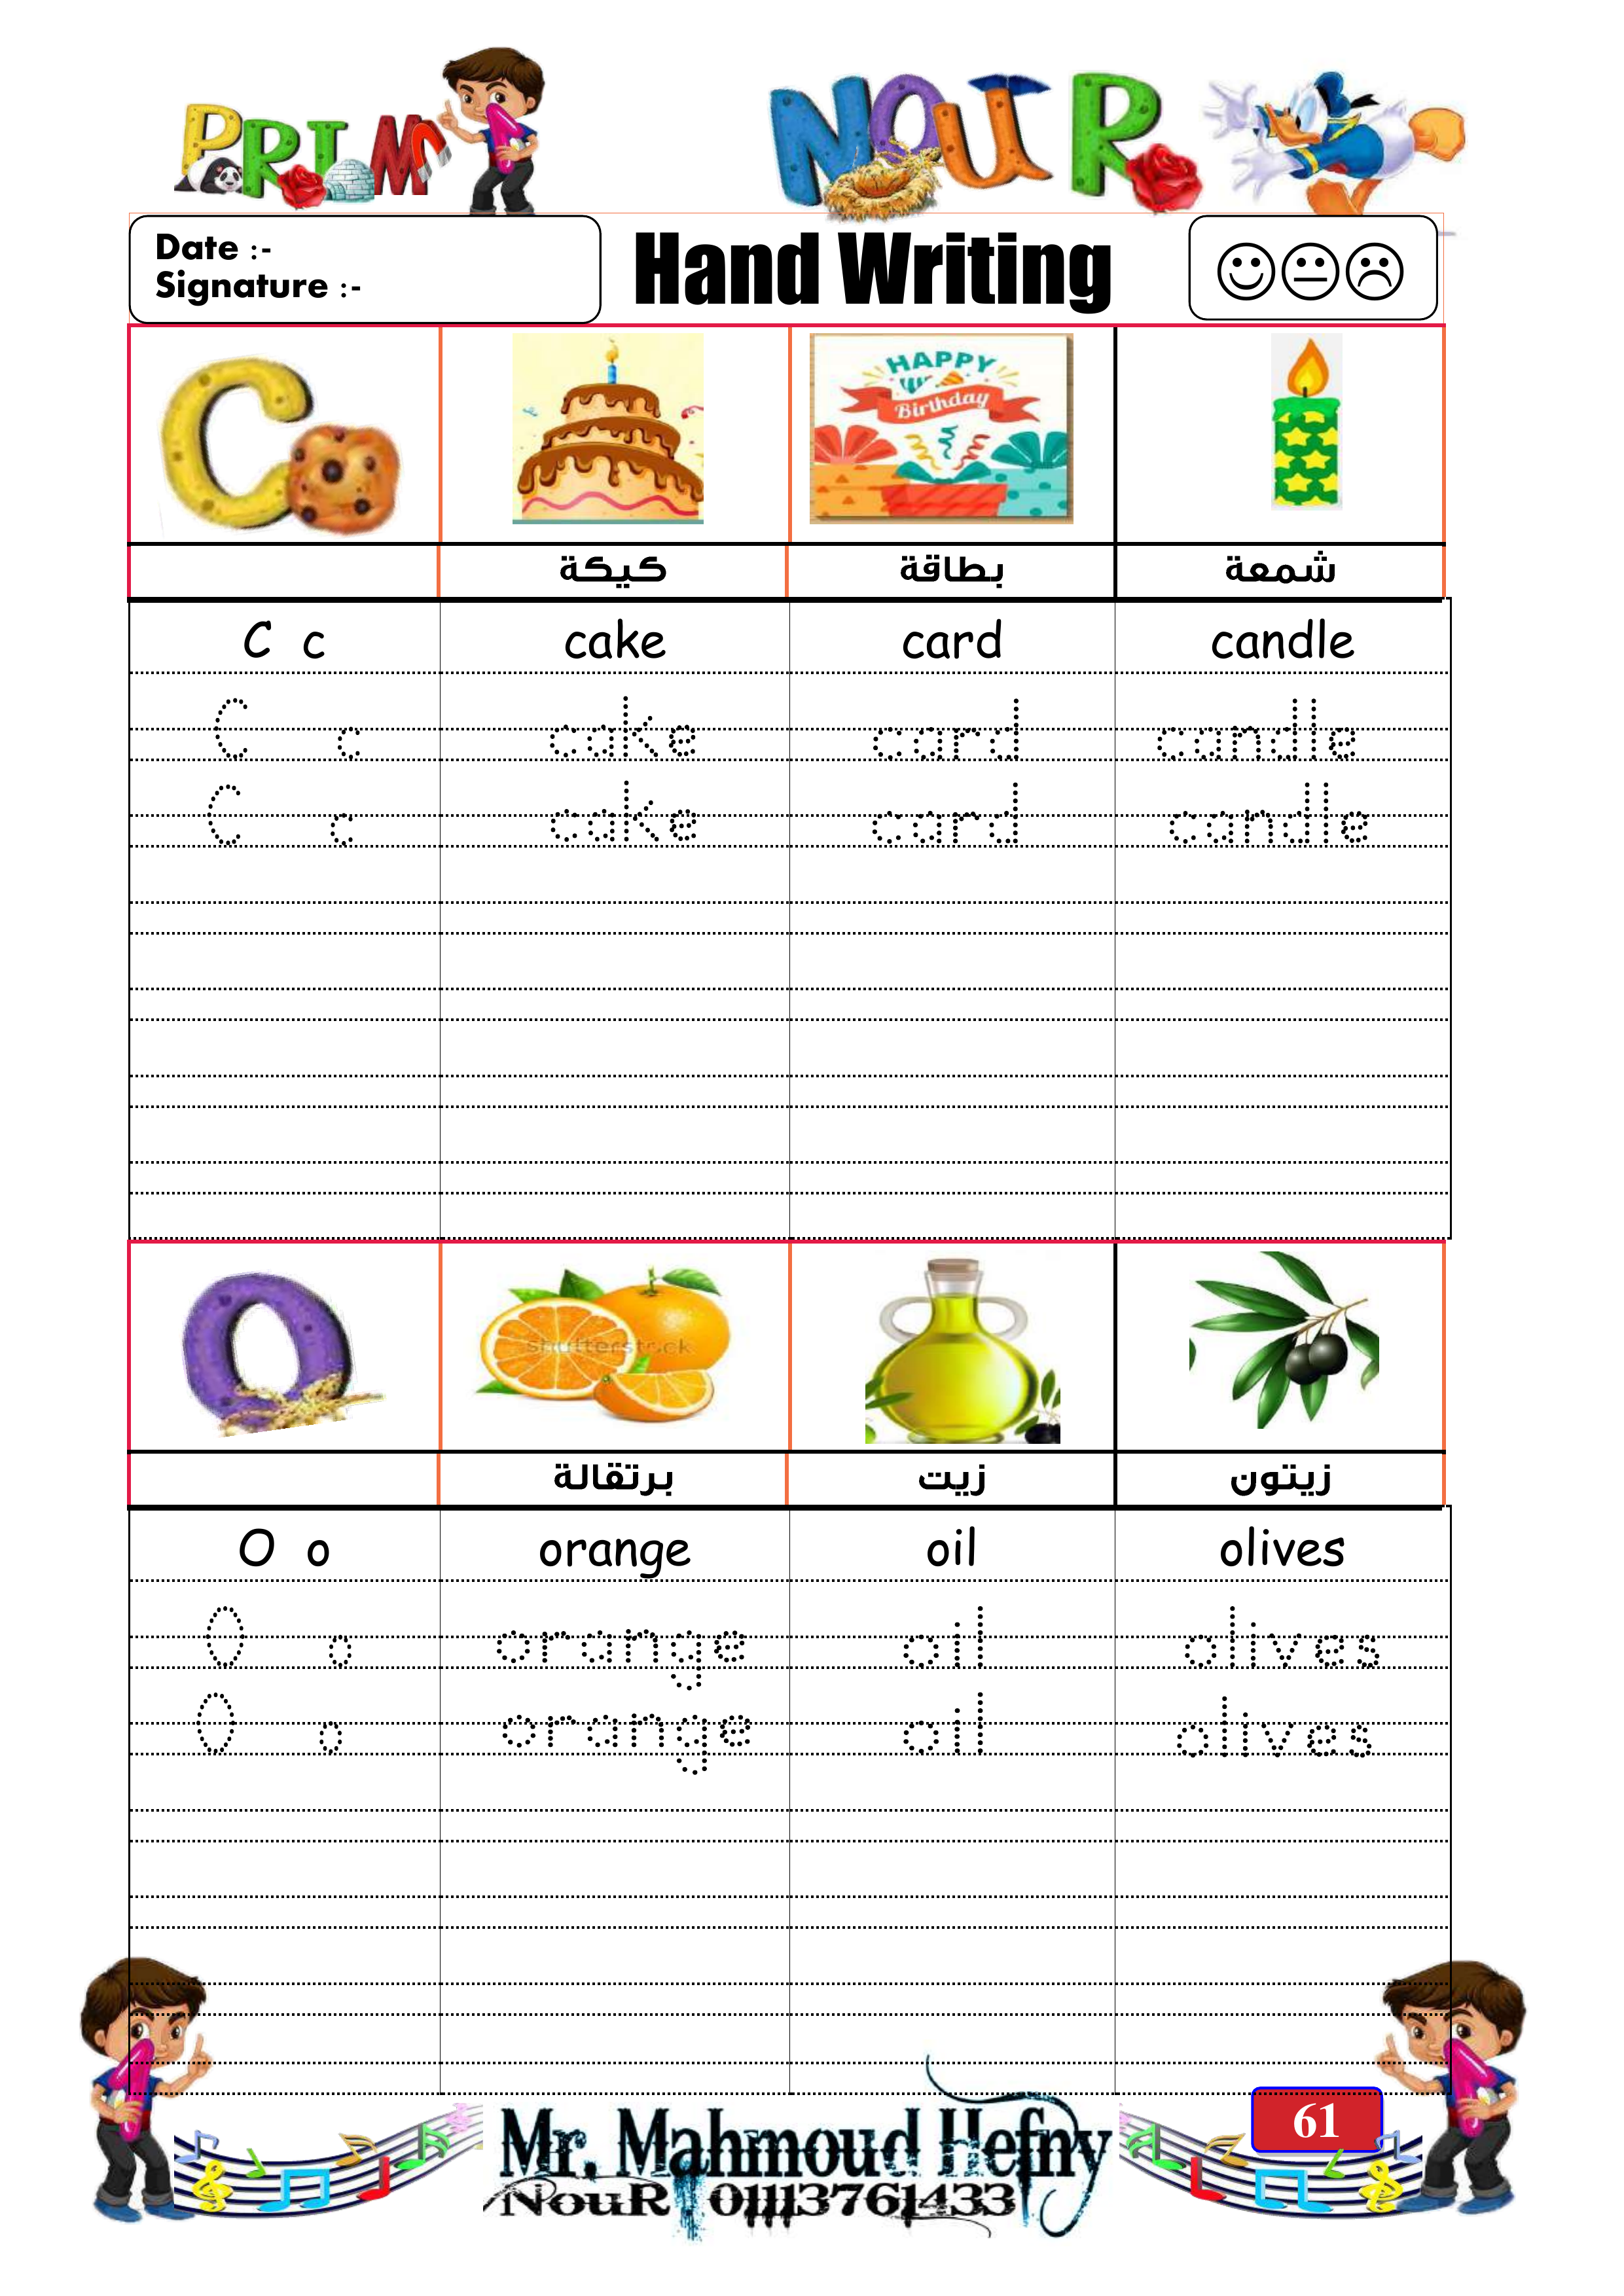 PRIM 1 NOUR
Date :-
Signature :-
Hand Writing
HAPPY
Birthday
C
كيكة بطاقة شمعة
C c cake card candle
C c cake card candle
C c cake card candle
O
shutterstock
برتقالة زيت زيتون
O o orange oil olives
O o orange oil olives
O o orange oil olives
61
Mr. Mahmoud Hefny
NouR. 01113761433